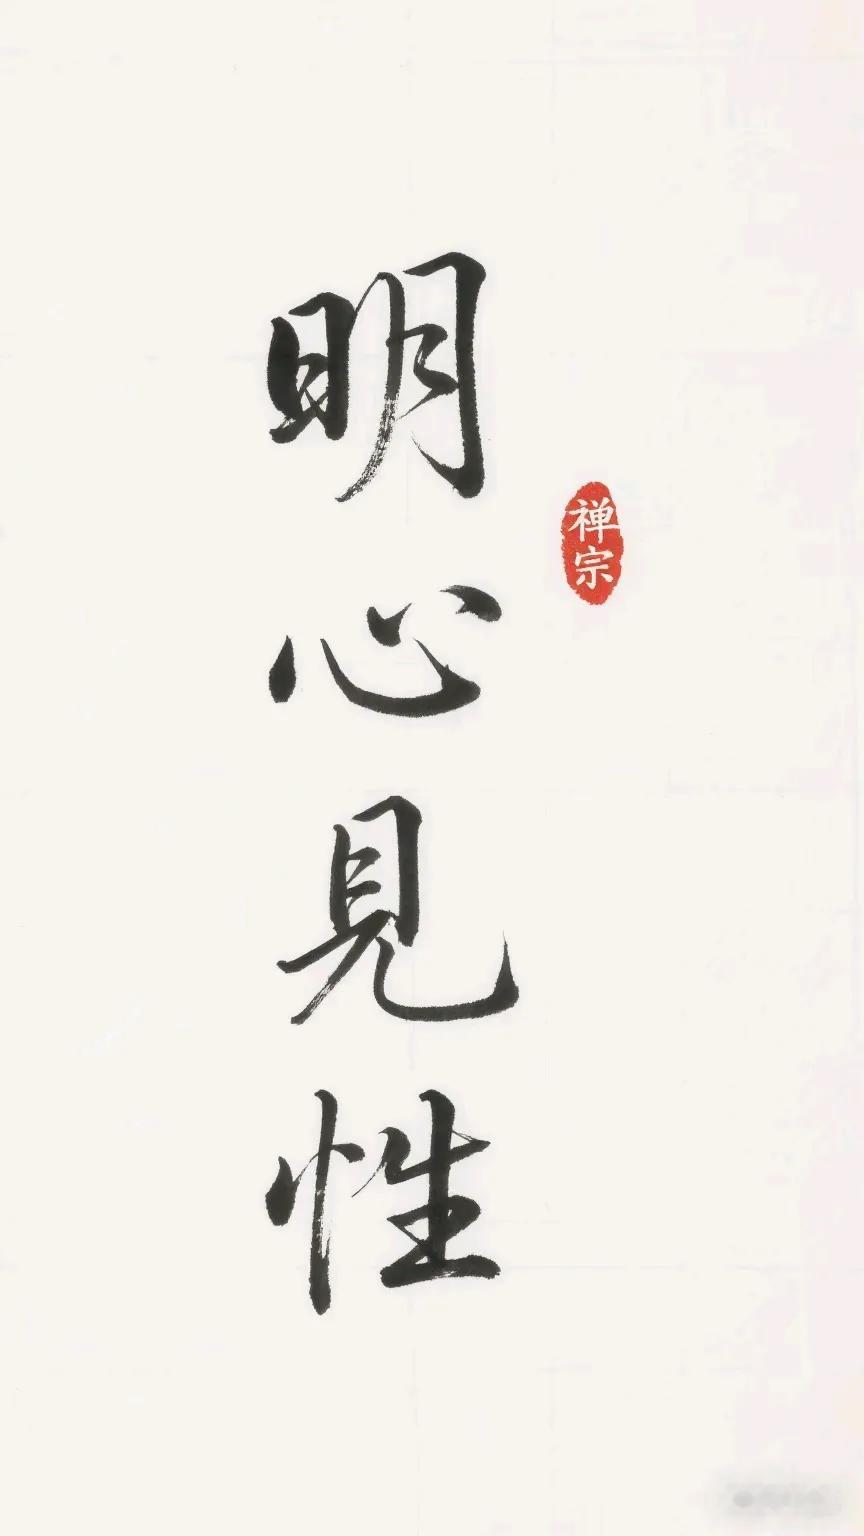 明心見性
禅宗